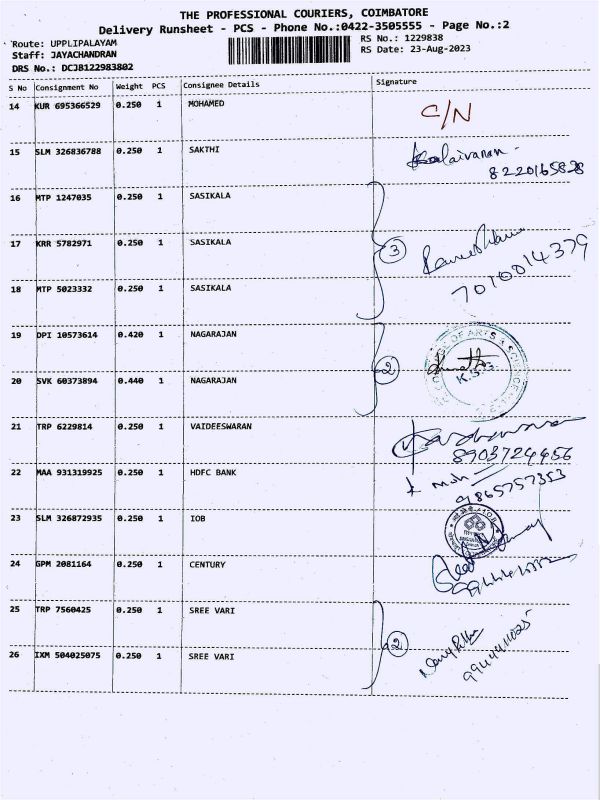 THE PROFESSIONAL COURIERS, COIMBATORE
Delivery Runsheet - PCS - Phone No.:0422-3505555 - Page No.:2
Route: UPPLIPALAYAM
RS No.: 1229838
Staff: JAYACHANDRAN
RS Date: 23-Aug-2023
DRS No.: DCJB122983802
S No Consignment No Weight PCS Consignee Details Signature
14 KUR 695366529 0.250 1 MOHAMED C/N
15 SLM 326836788 0.250 1 SAKTHI Kalaivanan
8220165828
16 MTP 1247035 0.250 1 SASIKALA
17 KRR 5782971 0.250 1 SASIKALA 3
7010014379
18 MTP 5023332 0.250 1 SASIKALA
19 DPI 10573614 0.420 1 NAGARAJAN
OF ARTS & SCIENCE
20 SVK 60373894 0.440 1 NAGARAJAN 2
21 TRP 6229814 0.250 1 VAIDEESWARAN
8903724456
22 MAA 931319925 0.250 1 HDFC BANK
9865757353
23 SLM 326872935 0.250 1 IOB
24 GPM 2081164 0.250 1 CENTURY
25 TRP 7560425 0.250 1 SREE VARI
2
26 IXM 504025075 0.250 1 SREE VARI